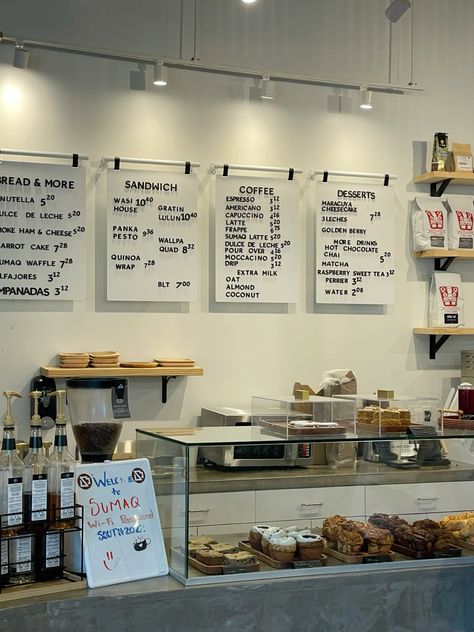 BREAD & MORE
NUTELLA 5²⁰
DULCE DE LECHE 5²⁰
SMOKE HAM & CHEESE 5²⁰
CARROT CAKE 7²⁸
SUMAQ WAFFLE 7²⁸
ALFAJORES 3¹²
EMPANADAS 3¹²
SANDWICH
WASI HOUSE 10⁴⁰
GRATIN LULUN 10⁴⁰
PANKA PESTO 9³⁶
WALLPA QUAD 8³²
QUINOA WRAP 7²⁸
BLT 7⁰⁰
COFFEE
ESPRESSO 3¹²
AMERICANO 3¹²
CAPUCCINO
LATTE
FRAPPE
SUMAQ LATTE 5²⁰
DULCE DE LECHE
POUR OVER
MOCCACINO 5²⁰
DRIP 3¹²
EXTRA MILK
OAT
ALMOND
COCONUT
DESSERTS
MARACUYA CHEESECAKE
3 LECHES 7²⁸
GOLDEN BERRY
MORE DRINKS
HOT CHOCOLATE
CHAI 5²⁰
MATCHA
RASPBERRY SWEET TEA 3¹²
PERRIER 3¹²
WATER 2⁰⁸
WELCOME
TO
SUMAQ
Wi-Fi Password
SOUTH202